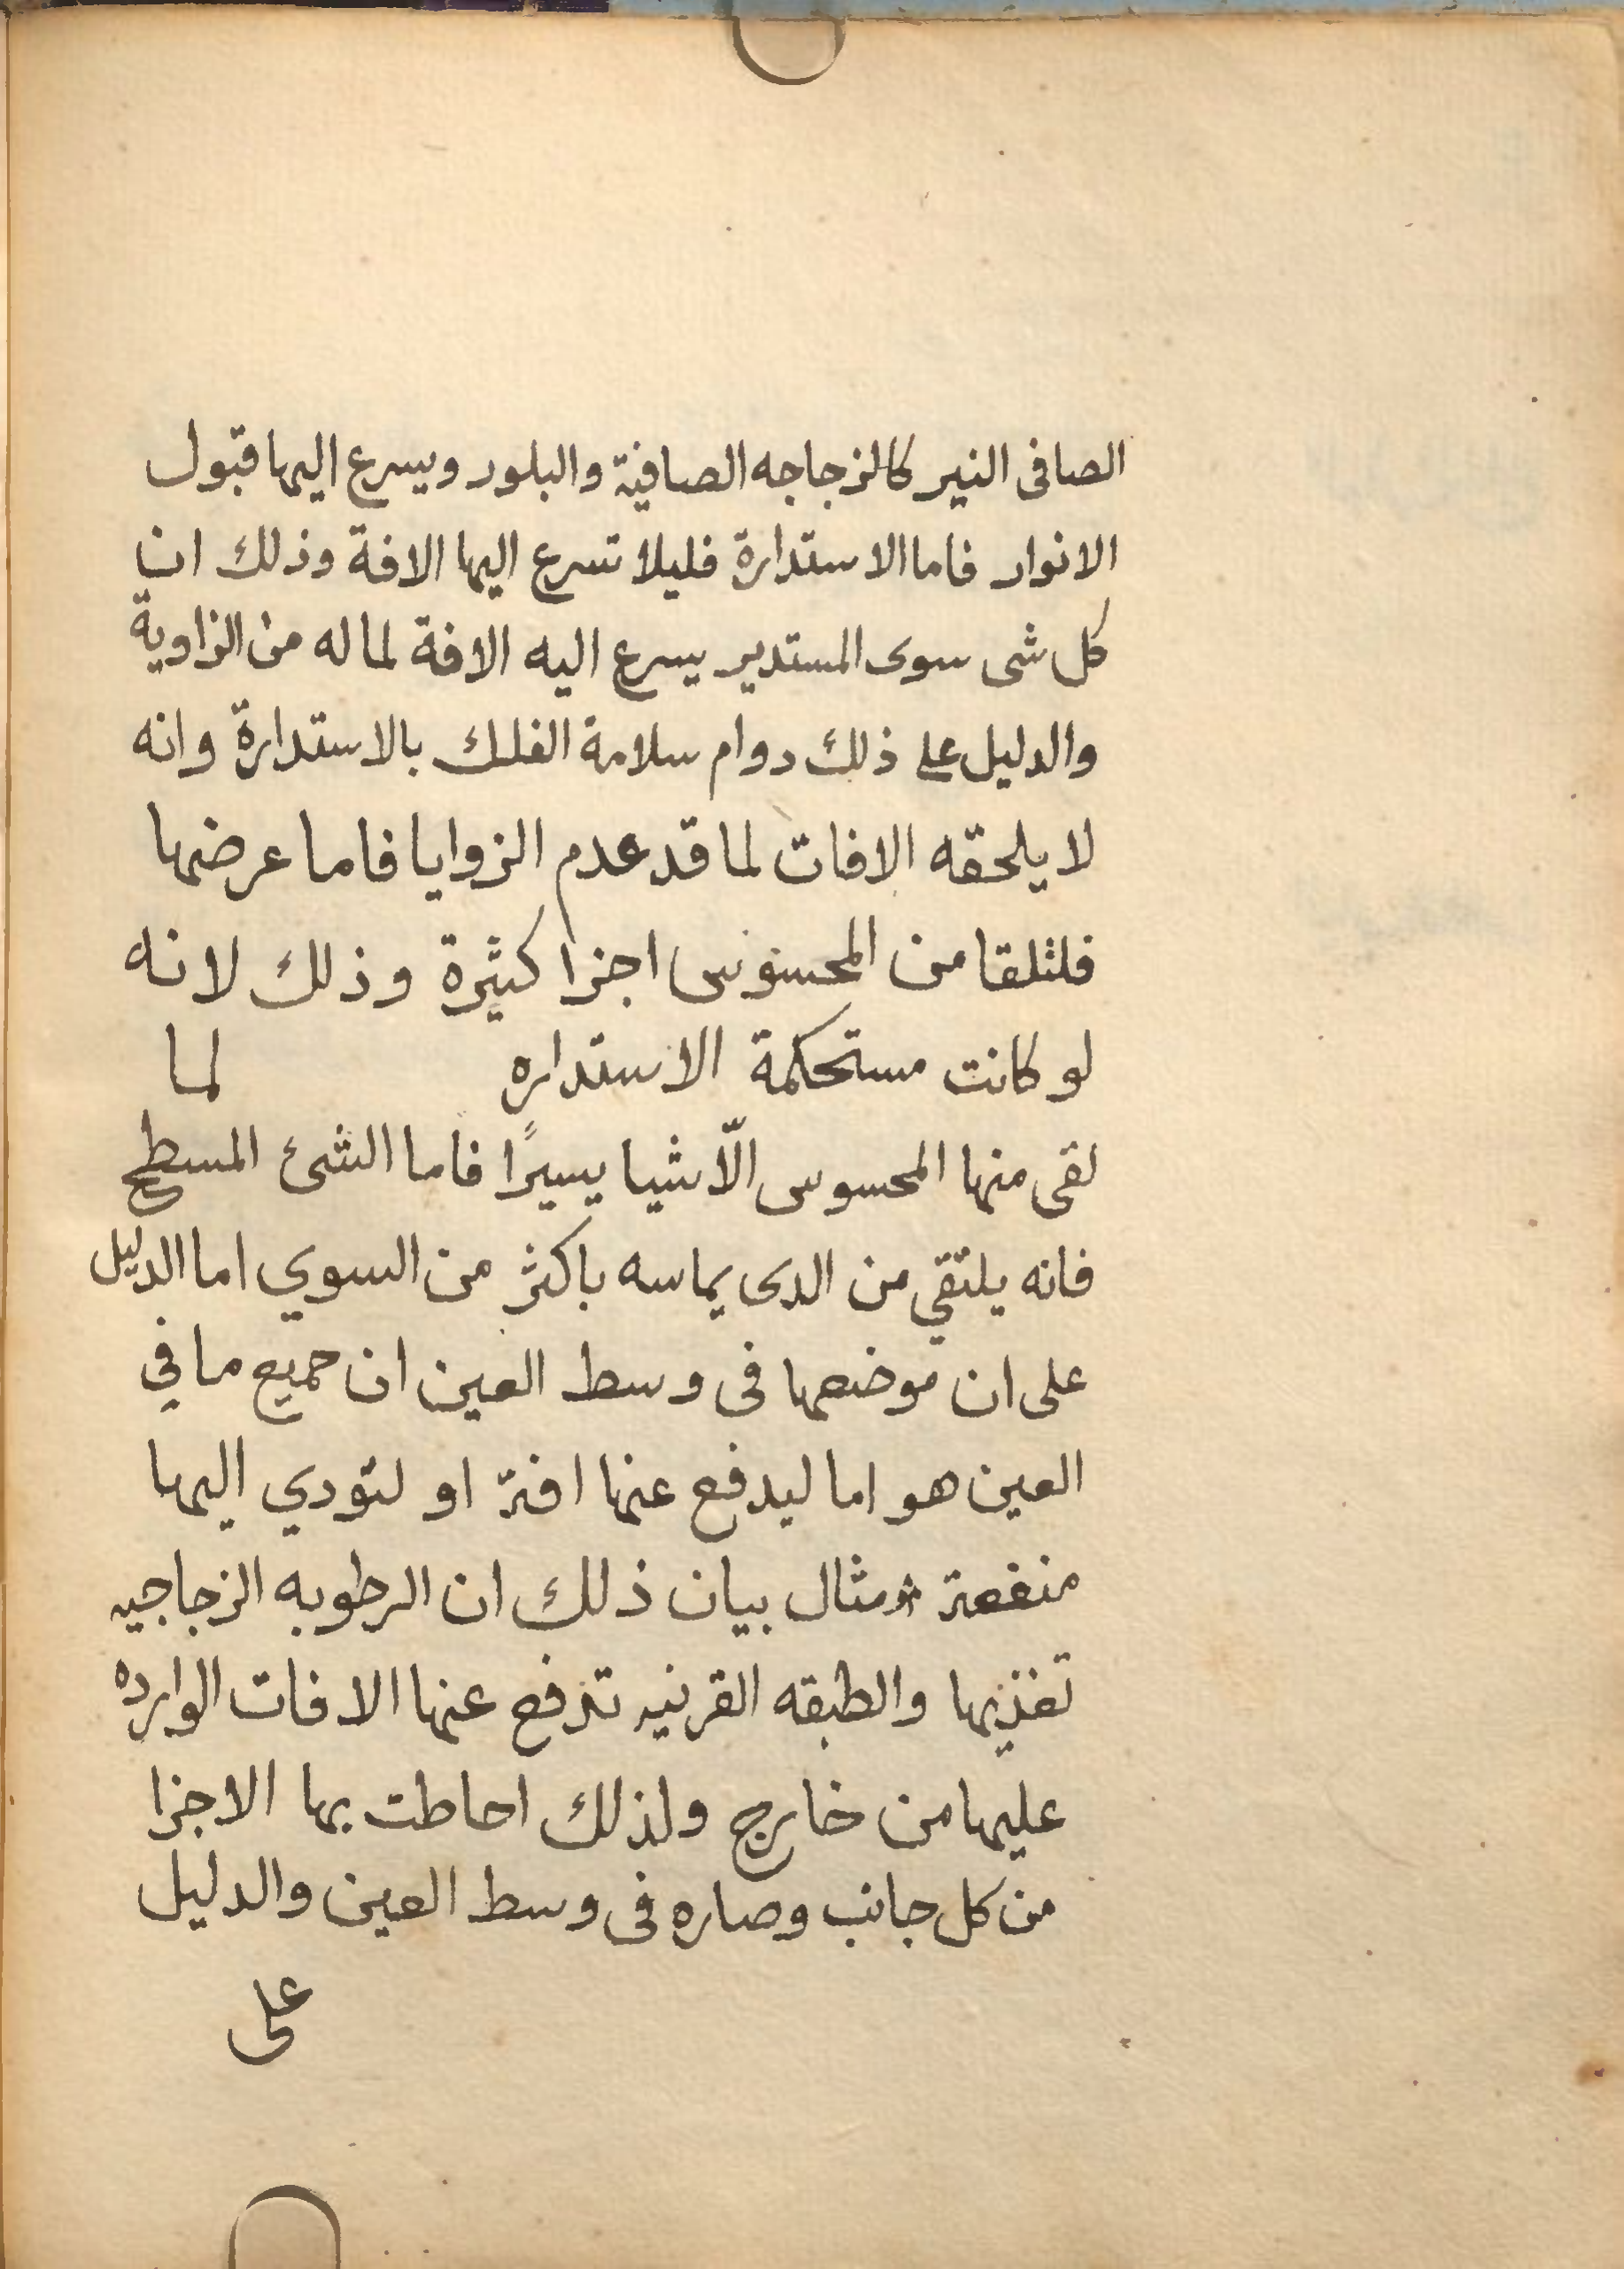 الصافى النير كالزجاجه الصافية والبلور ويسرع اليها قبول
الانوار فاما الاستدارة فليلا تسرع اليها الافة وذلك ان
كل شى سوى المستدير يسرع اليه الافة لما له من الزاوية
والدليل على ذلك دوام سلامة الفلك بالاستدارة وانه
لا يلحقه الافات لما قد عدم الزوايا فاما عرضها
فلتلقا من المحسوس اجزا كثيرة وذلك لانه
لو كانت مستحكمة الاستداره لما
لقى منها المحسوس الّا شيا يسيرًا فاما الشئ المسطح
فانه يلتقي من الدى يماسه باكثر من السوي اما الدليل
على ان موضعها فى وسط العين ان جميع ما في
العين هو اما ليدفع عنها افة او لتودي اليها
منفعة ومثال بيان ذلك ان الرطوبه الزجاجيه
تغذيها والطبقه القرنيه تدفع عنها الافات الوارده
عليها من خارج ولذلك احاطت بها الاجزا
من كل جانب وصاره فى وسط العين والدليل
على